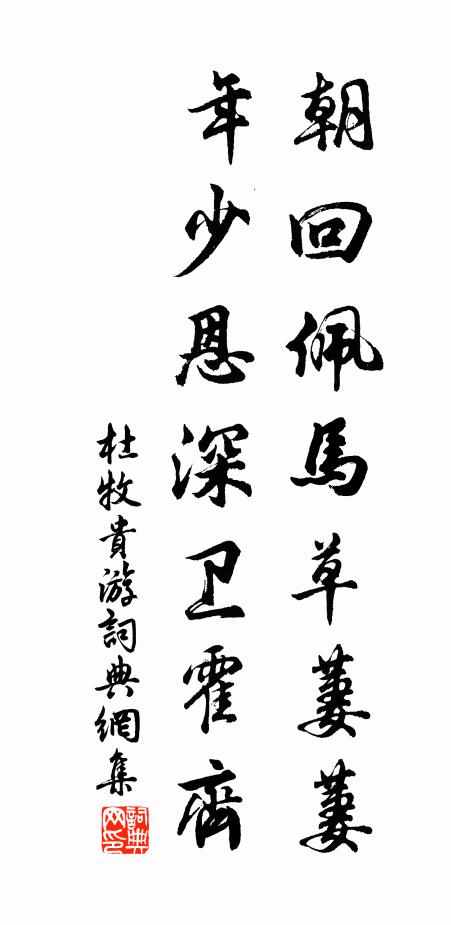 朝回佩馬草萋萋
年少恩深卫霍齊
杜牧貴游詞典網集
詞典
网印